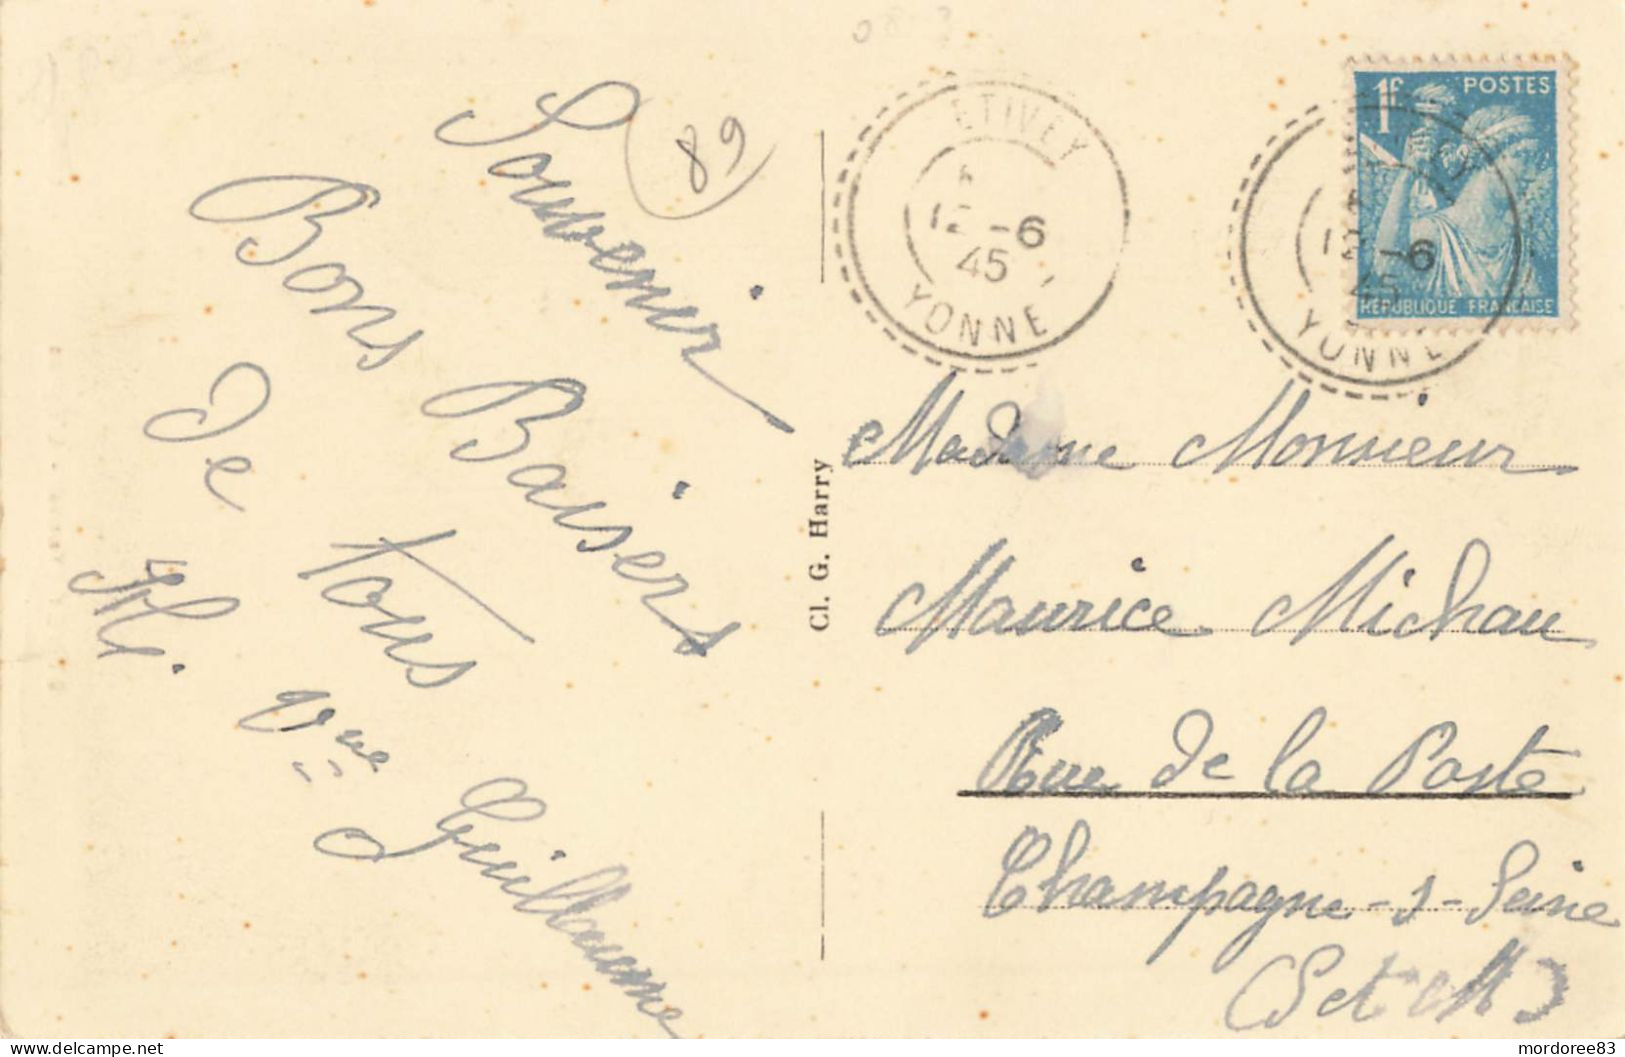 Souvenir
89
Bons Baisers
de tous
M. Vve Guillaume
Cl. G. Harry
ETIVEY
12 -6
45
YONNE
1F POSTES
REPUBLIQUE FRANCAISE
12 -6
45
YONNE
Madame Monsieur
Maurice Michau
Rue de la Poste
Champagne-s-Seine
(S et M)
https://www.delcampe.net
mordoree83